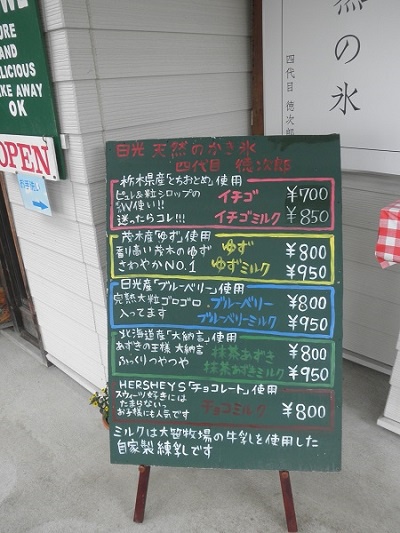 RE
AND
LICIOUS
KE AWAY
OK
OPEN
然の氷
四代目 徳次郎
日光 天然のかき氷
四代目 徳次郎
栃木県産「とちおとめ」使用
ピューレ&粒シロップの
W使い!!
迷ったらコレ!!!
イチゴ ¥700
イチゴミルク ¥850
茂木産「ゆず」使用
香り高い茂木のゆず
さわやかNO.1
ゆず ¥800
ゆずミルク ¥950
日光産「ブルーベリー」使用
完熟大粒ゴロゴロ
入ってます
ブルーベリー ¥800
ブルーベリーミルク ¥950
北海道産「大納言」使用
あずきの王様 大納言
ふっくらつやつや
抹茶あずき ¥800
抹茶あずきミルク ¥950
HERSHEYS「チョコレート」使用
スウィーツ好きには
たまらない。
お子様にも人気です
チョコミルク ¥800
ミルクは大笹牧場の牛乳を使用した
自家製練乳です